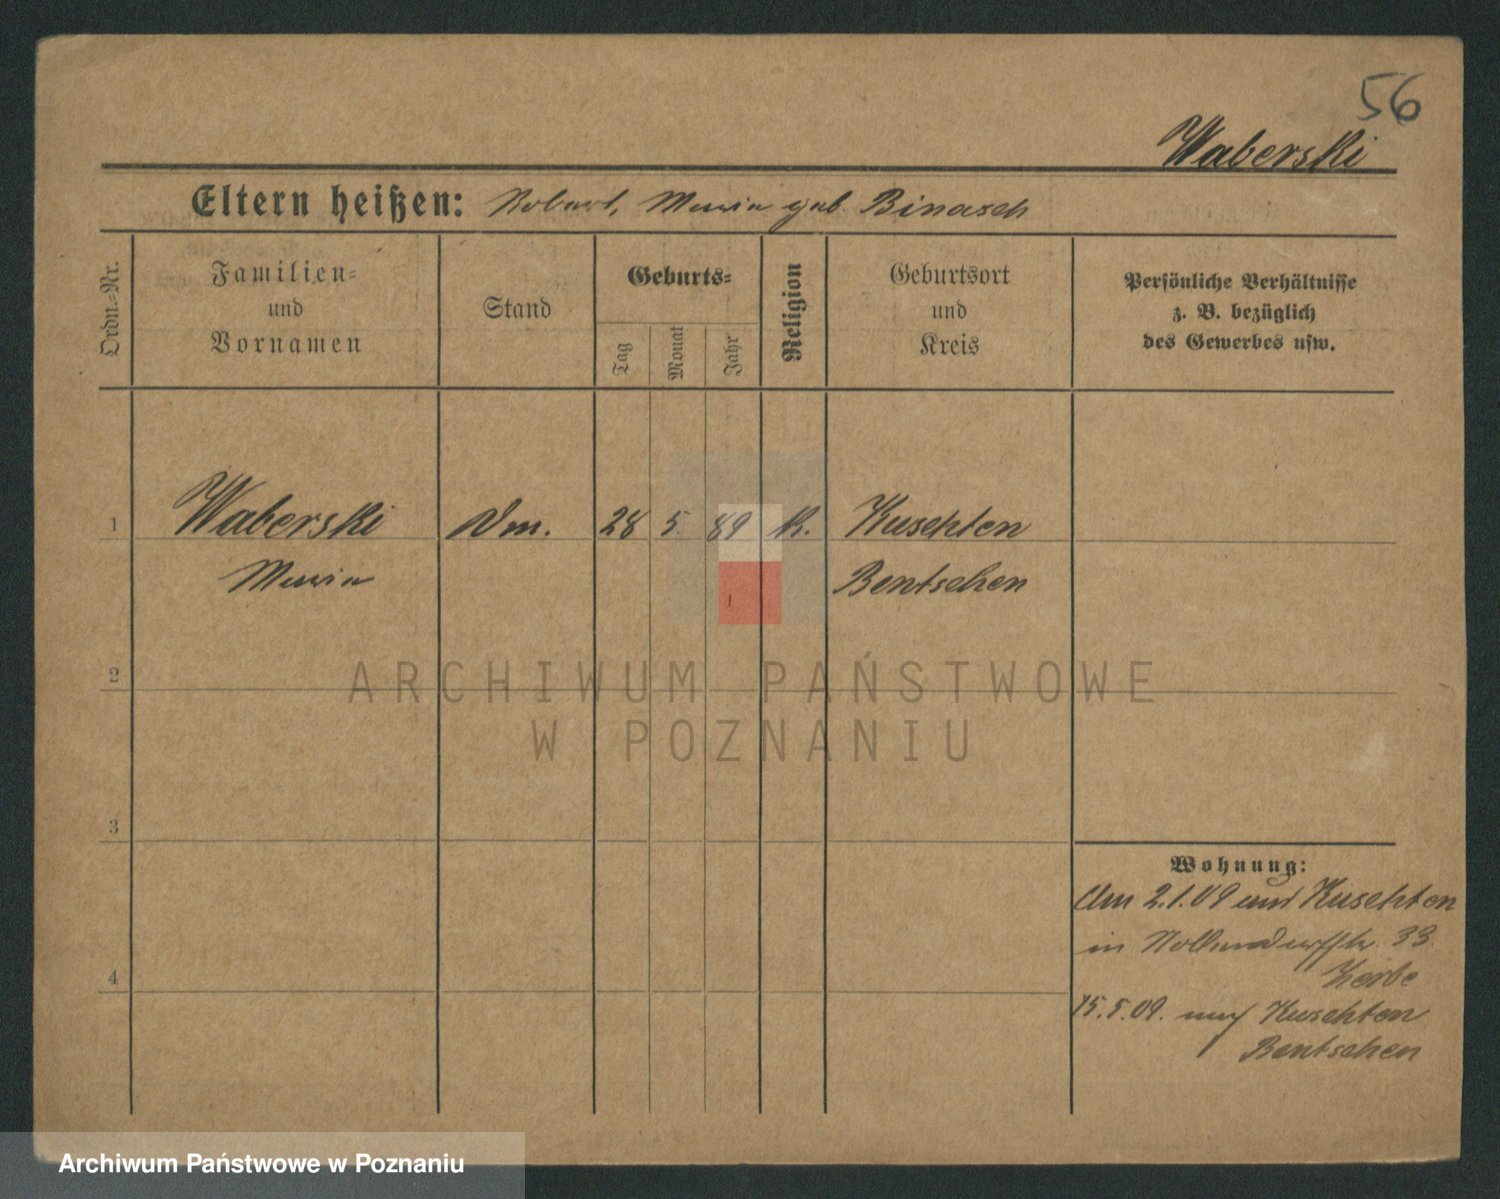 56
Waberski
Eltern heißen: Robert, Maria geb. Binasch
Ordn.-Nr.
Familien-
und
Vornamen
Stand
Geburts-
Tag
Monat
Jahr
Religion
Geburtsort
und
Kreis
Persönliche Verhältnisse
z. B. bezüglich
des Gewerbes usw.
1 Waberski Dm. 28 5. 89 K. Kuschten
Maria Bentschen
2
3
4
Wohnung:
Am 2.1.09 aus Kuschten
in Nollendorfstr. 33.
Zerbe
15.5.09. nach Kuschten
Bentschen
ARCHIWUM PAŃSTWOWE
W POZNANIU
Archiwum Państwowe w Poznaniu